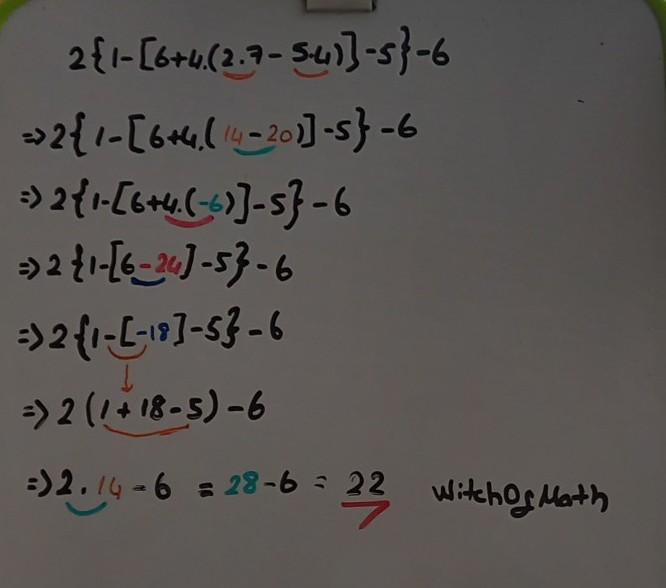 2{1-[6+4.(2.7-5.4)]-5}-6
=>2{1-[6+4.(14-20)]-5}-6
=>2{1-[6+4.(-6)]-5}-6
=>2{1-[6-24]-5}-6
=>2{1-[-18]-5}-6
=>2(1+18-5)-6
=>2.14-6 = 28-6 = 22 WitchOfMath